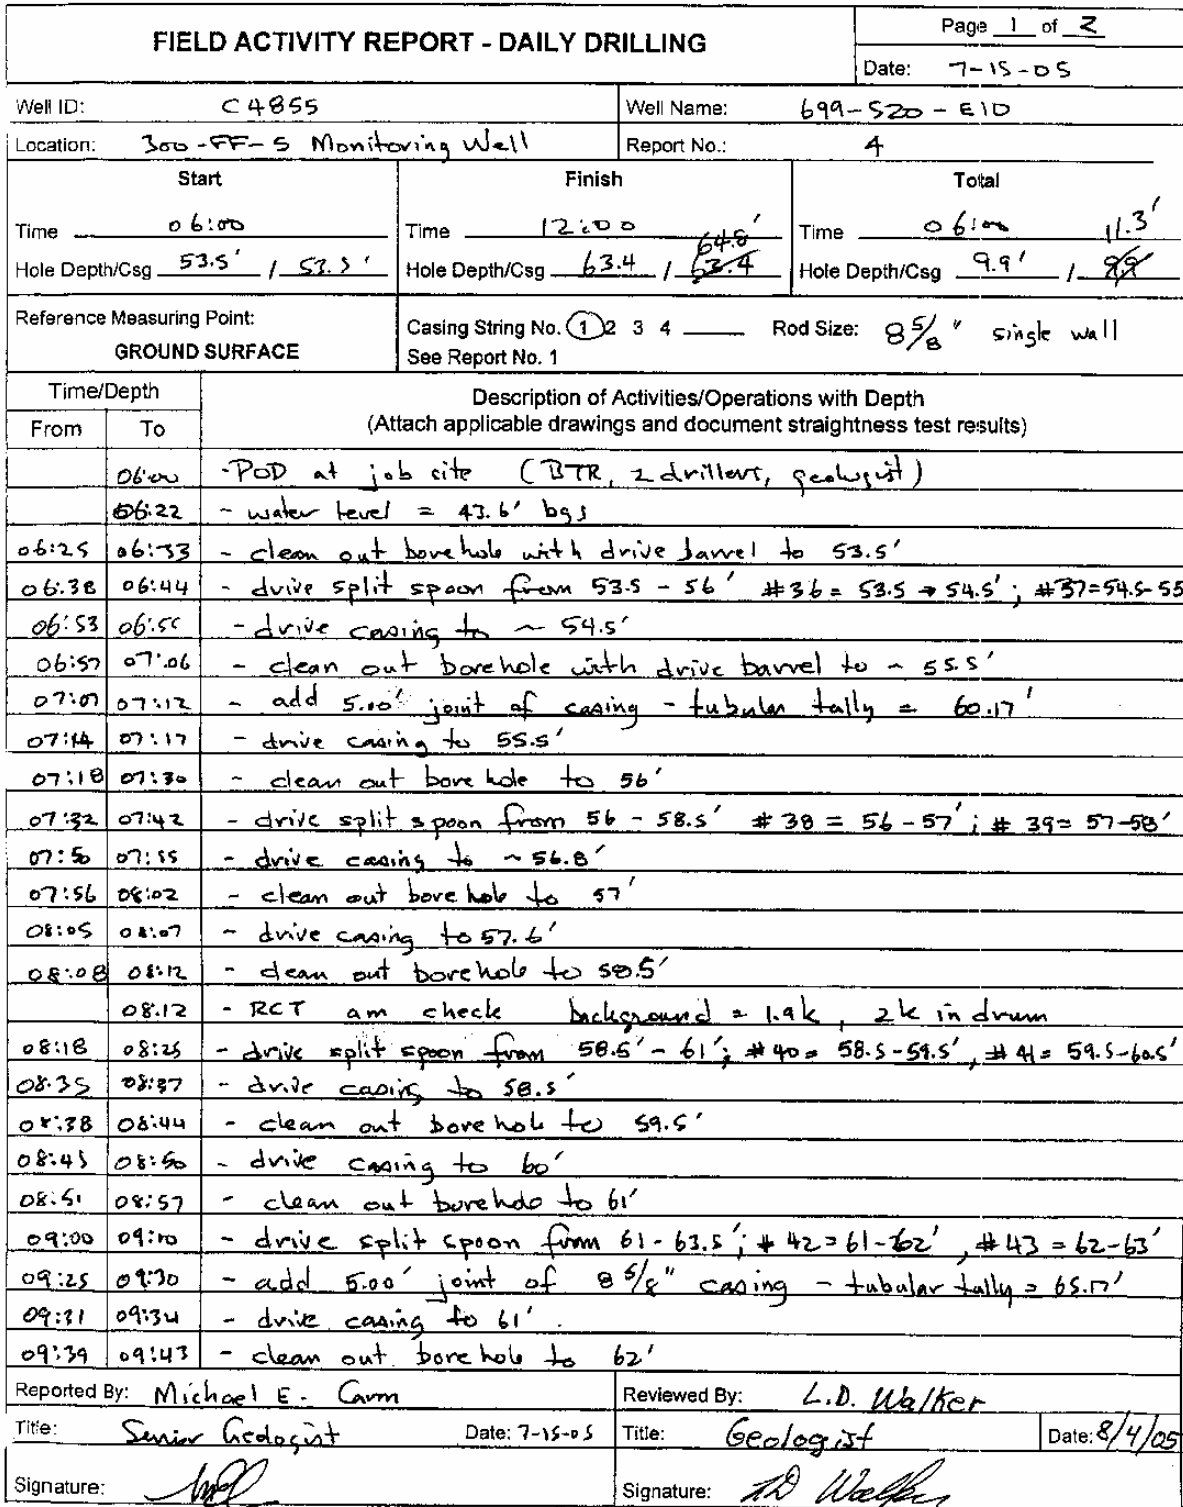 FIELD ACTIVITY REPORT - DAILY DRILLING
Page 1 of 2
Date: 7-15-05
Well ID: C4855
Well Name: 699-S20-E10
Location: 300-FF-5 Monitoring Well
Report No.: 4
Start
Finish
Total
Time 06:00
Time 12:00
Time 06:00
Hole Depth/Csg 53.5' / 53.5'
Hole Depth/Csg 63.4 / 63.4 64.8'
Hole Depth/Csg 9.9' / 9.9 11.3'
Reference Measuring Point:
GROUND SURFACE
Casing String No. 1 2 3 4
See Report No. 1
Rod Size: 8 5/8" single wall
Time/Depth
From To
Description of Activities/Operations with Depth
(Attach applicable drawings and document straightness test results)
06:00 - POD at job site (BTR, 2 drillers, geologist)
06:22 - water level = 43.6' bgs
06:25 06:33 - clean out borehole with drive barrel to 53.5'
06:38 06:44 - drive split spoon from 53.5 - 56' #36 = 53.5 → 54.5'; #37=54.5-55
06:53 06:55 - drive casing to ~ 54.5'
06:57 07:06 - clean out borehole with drive barrel to ~ 55.5'
07:07 07:12 - add 5.00' joint of casing - tubular tally = 60.17'
07:14 07:17 - drive casing to 55.5'
07:18 07:30 - clean out bore hole to 56'
07:32 07:42 - drive split spoon from 56 - 58.5' #38 = 56-57'; #39= 57-58'
07:50 07:55 - drive casing to ~56.8'
07:56 08:02 - clean out bore hole to 57'
08:05 08:07 - drive casing to 57.6'
08:08 08:12 - clean out borehole to 58.5'
08:12 - RCT am check background = 1.9k, 2k in drum
08:18 08:25 - drive split spoon from 58.5' - 61'; #40= 58.5-59.5', #41= 59.5-60.5'
08:35 08:37 - drive casing to 58.5'
08:38 08:44 - clean out bore hole to 59.5'
08:45 08:50 - drive casing to 60'
08:51 08:57 - clean out borehole to 61'
09:00 09:10 - drive split spoon from 61-63.5'; #42=61-62', #43=62-63'
09:25 09:30 - add 5.00' joint of 8 5/8" casing - tubular tally = 65.17'
09:31 09:34 - drive casing to 61'.
09:39 09:43 - clean out bore hole to 62'
Reported By: Michael E.
Reviewed By: L.D. Walker
Title: Senior Geologist
Date: 7-15-05
Title: Geologist
Date: 8/4/05
Signature:
Signature: LD Walker